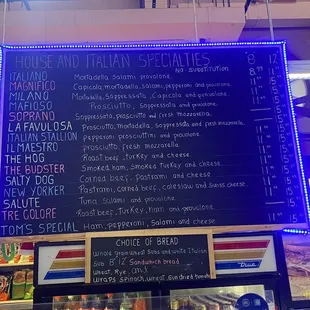 HOUSE AND ITALIAN SPECIALTIES 8 12
NO SUBSTITUTION
ITALIANO Mortadella salami provolone.
MAGNIFICO Capicola, mortadella, salami, pepperoni and provolone.
MILANO Mortadella, Soppressata, Capicola and provolone
MAFIOSO Prosciutto, Soppressata and provolone.
SOPRANO Soppressata, prosciutto and fresh mozzarella.
LA FAVULOSA Prosciutto, mortadella, soppressata and fresh mozzarella.
ITALIAN STALLION pepperoni prosciuttini and provolone.
IL MAESTRO prosciutto, fresh mozzarella
THE HOG Roast beef, turkey and cheese.
THE BUDSTER Smoked ham, Smoked turkey and cheese.
SALTY DOG Corned beef, Pastrami and cheese
NEW YORKER Pastrami, corned beef, coleslaw and Swiss cheese.
SALUTE Tuna, salami and provolone.
TRE GOLORE Roast beef, turkey, ham and provolone.
TOM'S SPECIAL Ham, pepperoni, Salami and cheese
CHOICE OF BREAD
Whole grain wheat Subs and white Italian
Sub 8" 12" Sandwich bread
Wheat, Rye, and
Wraps spinach, wheat, Sun dried Tomato